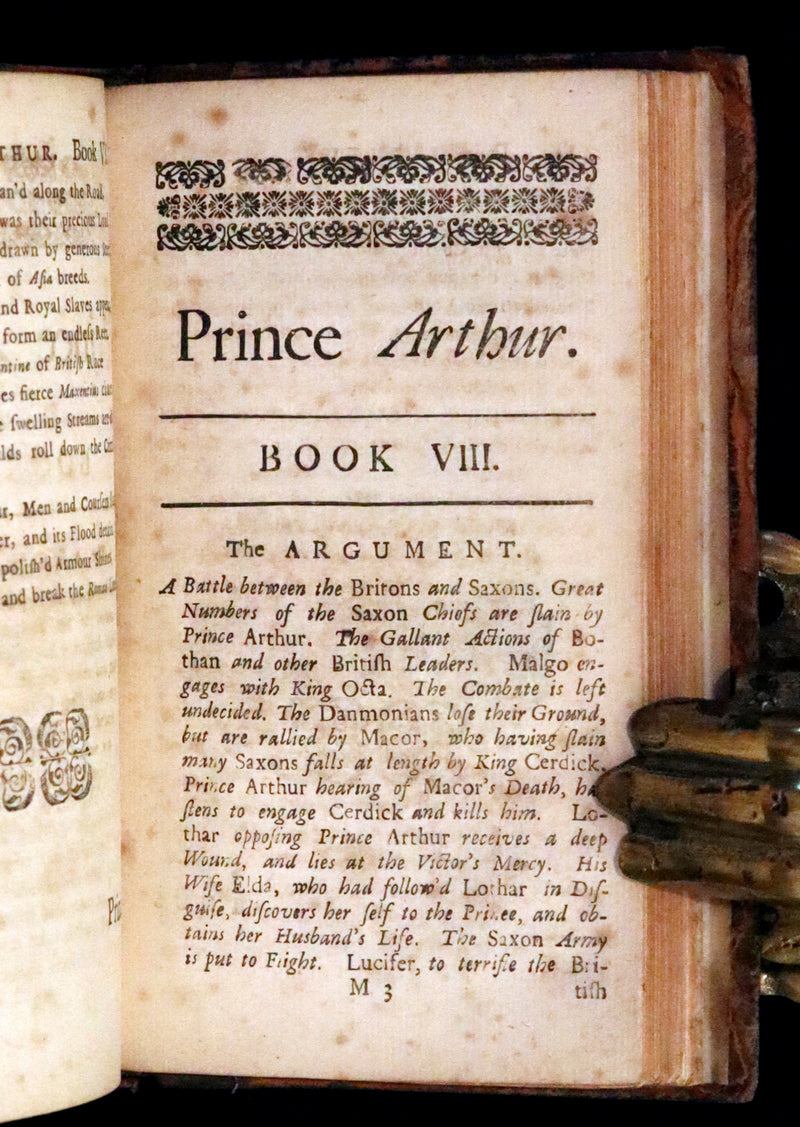 THUR. Book
an'd along the Road,
was their precious
drawn by generous
of Aſia breeds.
nd Royal Slaves
form an endleſs
of Britiſh Race
es fierce Maxentius
ſwelling Streams
lds roll down the
Men and
er, and its Flood
poliſh'd Armour
and break the Roman
Prince Arthur.
BOOK VIII.
The ARGUMENT.
A Battle between the Britons and Saxons. Great
Numbers of the Saxon Chiefs are ſlain by
Prince Arthur. The Gallant Actions of Bo-
than and other Britiſh Leaders. Malgo en-
gages with King Octa. The Combate is left
undecided. The Danmonians loſe their Ground,
but are rallied by Macor, who having ſlain
many Saxons falls at length by King Cerdick.
Prince Arthur hearing of Macor's Death, ha-
ſtens to engage Cerdick and kills him. Lo-
thar oppoſing Prince Arthur receives a deep
Wound, and lies at the Victor's Mercy. His
Wife Elda, who had follow'd Lothar in Diſ-
guiſe, diſcovers her ſelf to the Prince, and ob-
tains her Husband's Life. The Saxon Army
is put to Flight. Lucifer, to terrifie the Bri-
M 3 tiſh